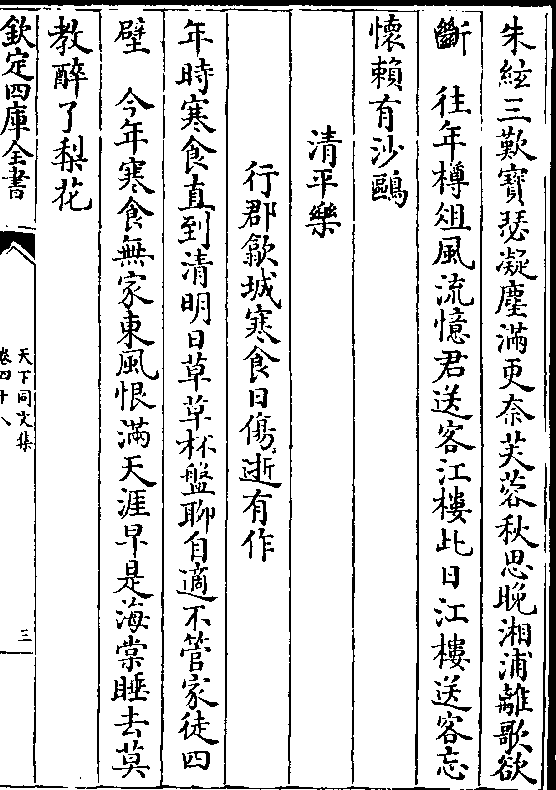 朱絃三歎寶瑟凝塵滿更奈芙蓉秋思晚湘浦離歌欲
斷　往年樽俎風流憶君送客江樓此日江樓送客忘
懷賴有沙鷗
清平樂
行郡歙城寒食日傷逝有作
年時寒食直到清明日草草杯盤聊自適不管家徒四
壁　今年寒食無家東風恨滿天涯早是海棠睡去莫
教醉了梨花
欽定四庫全書
天下同文集
卷四十八
三